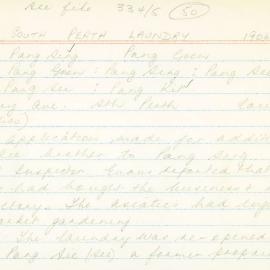 See file 334/5 (50)
SOUTH PERTH LAUNDRY 190
Pang Sing Pang Goon
Pang Goon : Pang Sing : Pang See
Pang See : Pang Kit
Ave. Sth Perth
application made for addit
brother to Pang Sing
Inspector Evans reported that
had bought the business
The Asiatics had beg
market gardening
The laundry was re-opened
Pang See (See) a former propri